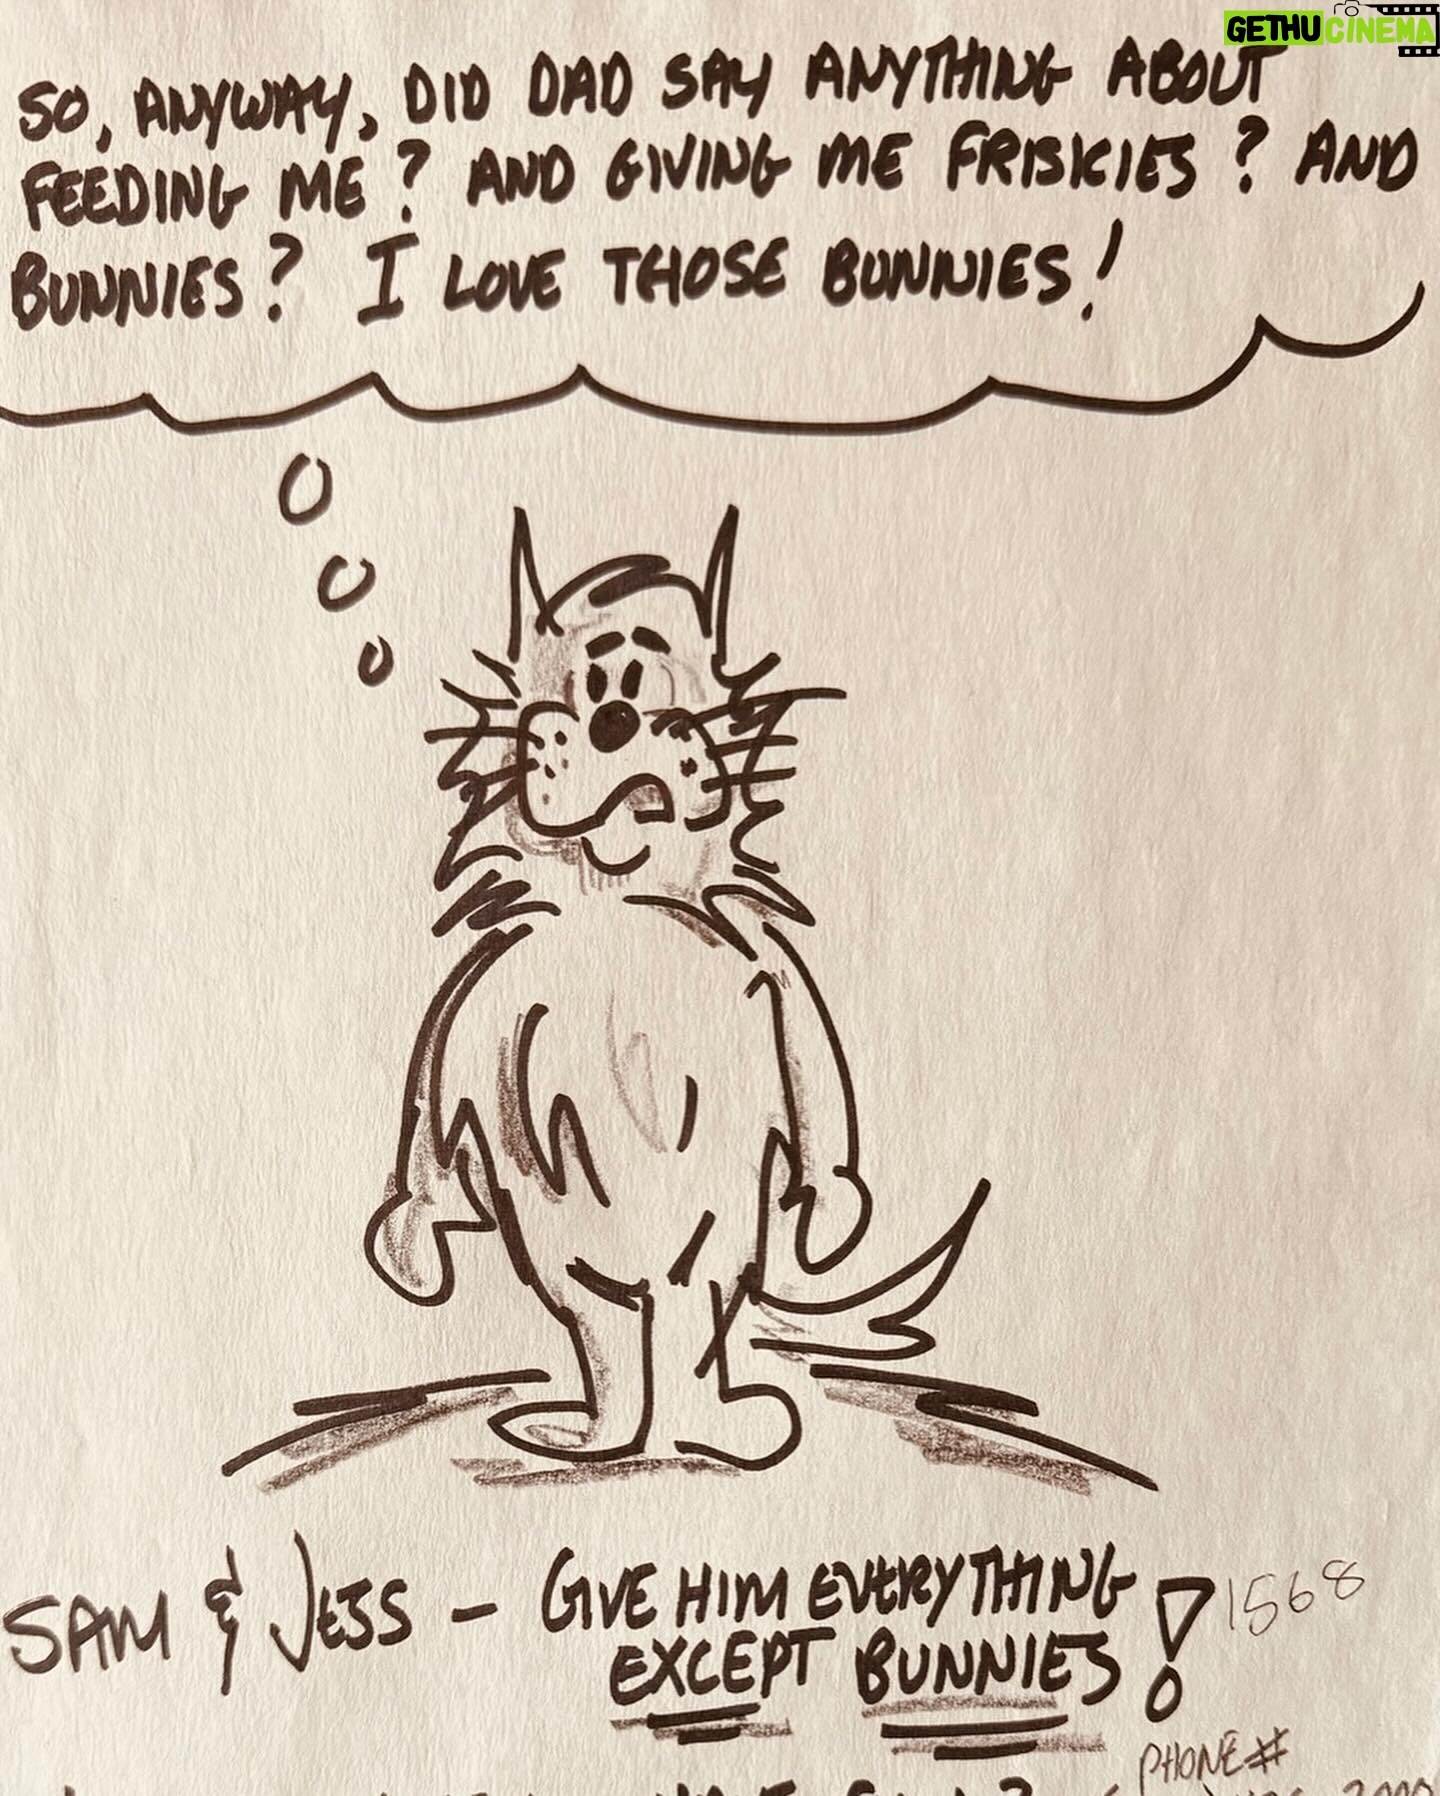 GETHUCINEMA
SO, ANYWAY, DID DAD SAY ANYTHING ABOUT
FEEDING ME? AND GIVING ME FRISKIES? AND
BUNNIES? I LOVE THOSE BUNNIES!
SAM & JESS - GIVE HIM EVERYTHING
EXCEPT BUNNIES! 1568
PHONE#